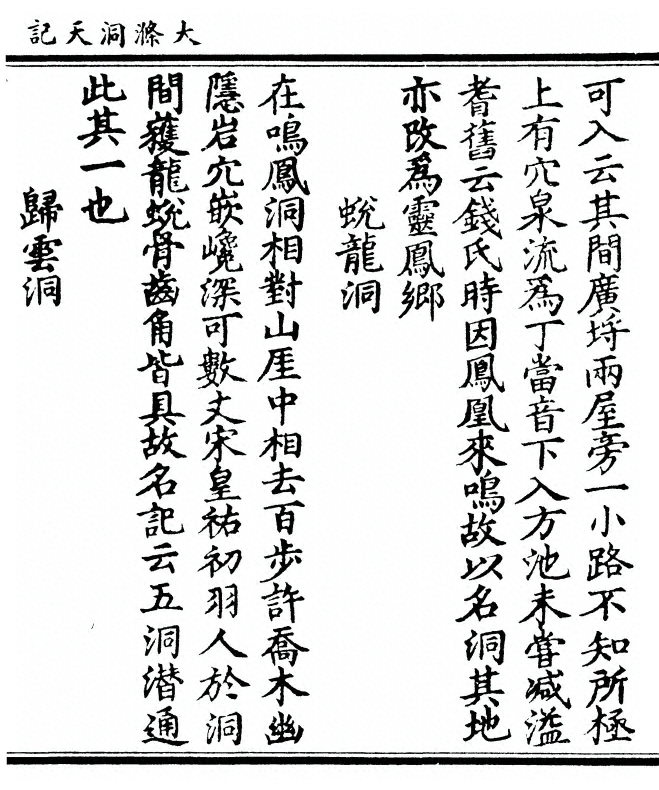 大滌洞天記
可入云其間廣埒兩屋旁一小路不知所極
上有穴泉流爲丁當音下入方池未嘗减溢
耆舊云錢氏時因鳳凰來鳴故以名洞其地
亦改爲靈鳳鄉
蛻龍洞
在鳴鳳洞相對山厓中相去百步許喬木幽
隱岩穴嵌巉深可數丈宋皇祐初羽人於洞
間蘿龍蛻骨齒角皆具故名記云五洞潜通
此其一也
歸雲洞